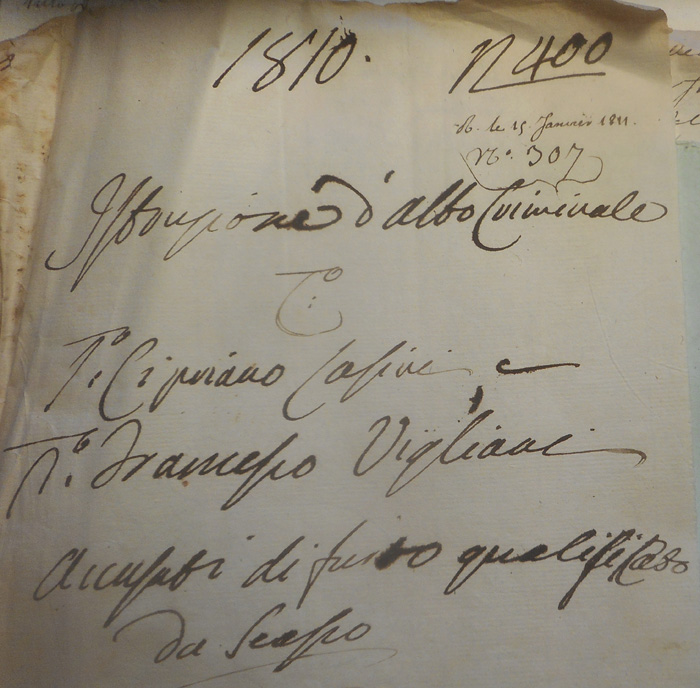 1810. N 400
R. le 15 Janvier 1811.
N.° 307
Istruzione d'alto Criminale
C.°
P.° Cipriano Casini e
P.° Francesco Vigliani
Accusati di furto qualificato
da Scasso